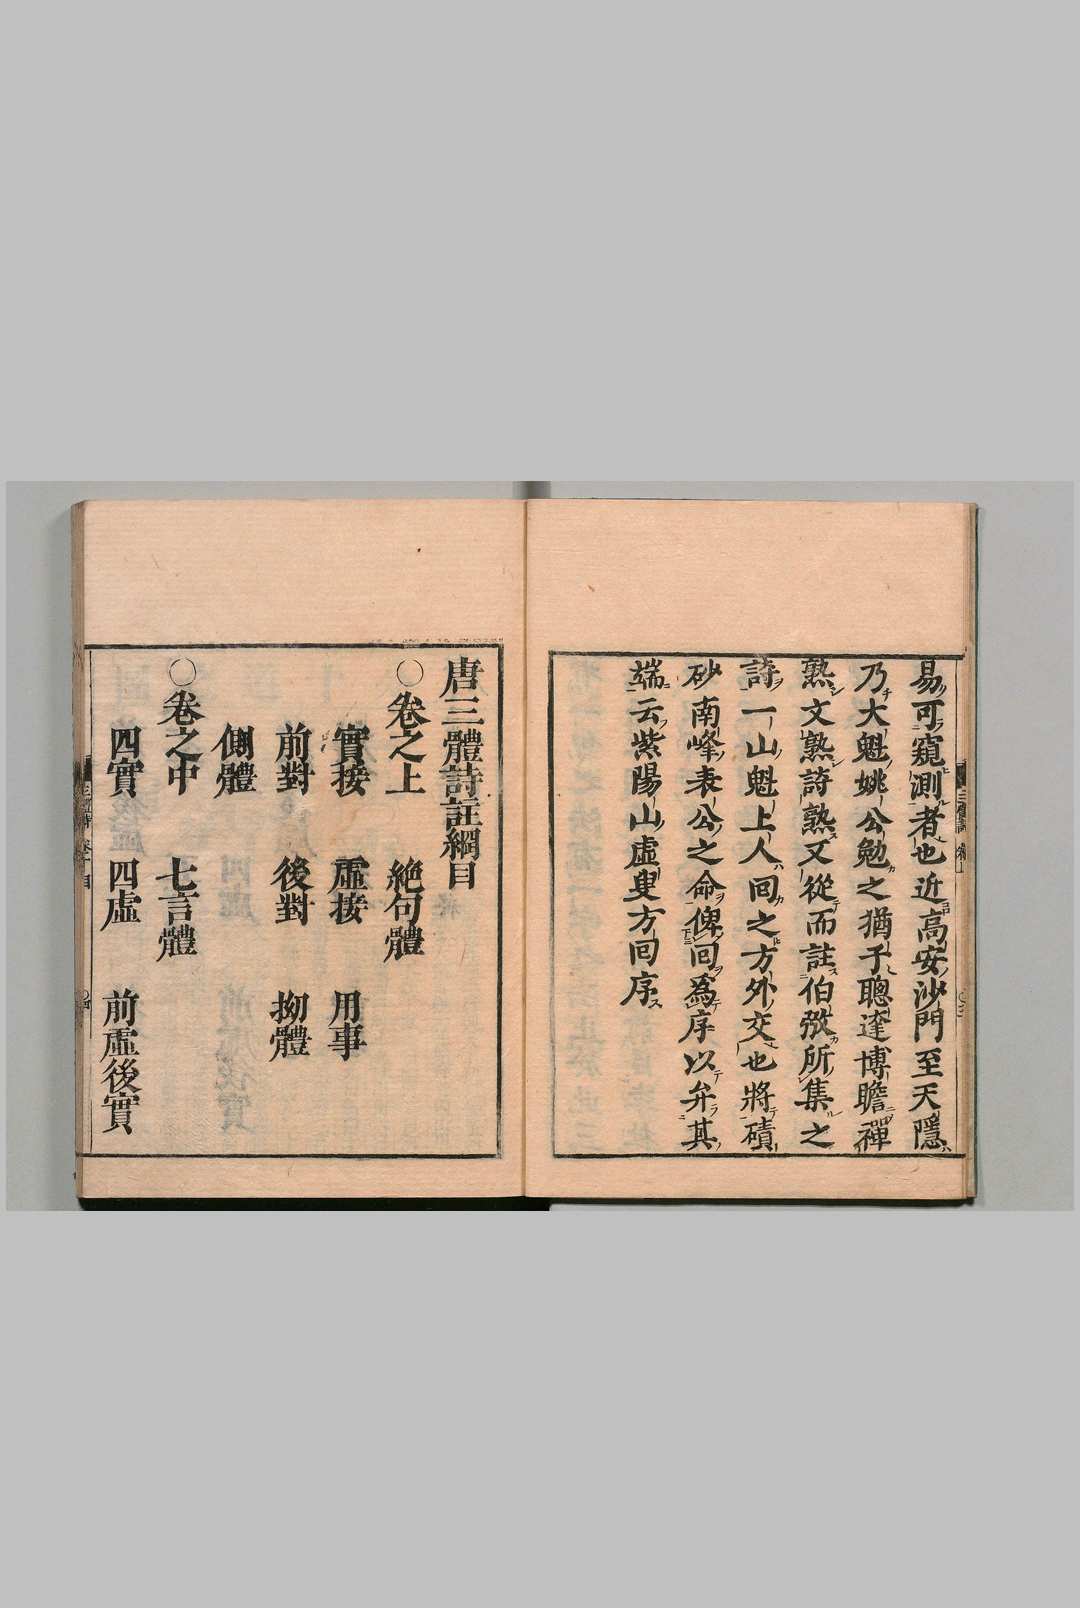 易可窺測者也近高安沙門至天隱
乃大魁姚公勉之猶子聰達博瞻禪
熟文熟詩熟又從而註伯弜所集之
詩一山魁上人回之方外交也將磧
砂南峰表公之命俾回為序以弁其
端云紫陽山虛叟方回序
唐三體詩註綱目
〇卷之上 絶句體
實接 虛接 用事
前對 後對 拗體
側體
〇卷之中 七言體
四實 四虛 前虛後實